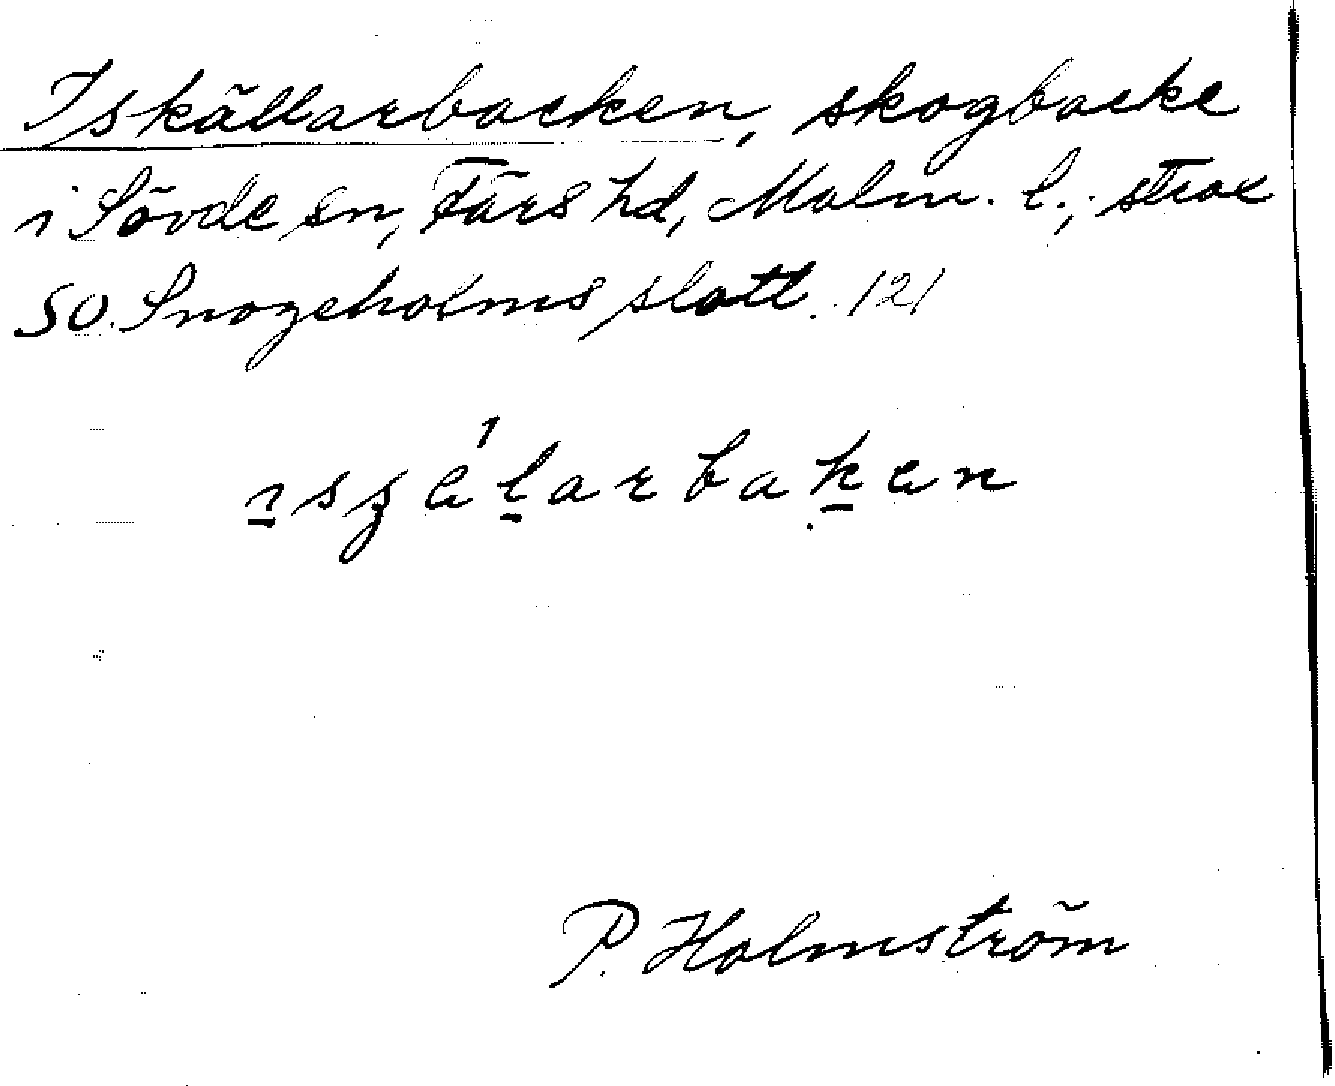 Iskällarbacken, skogbacke
i Sövde sn, Färs hd, Malm. l.; strax
SO. Snogeholms slott. 121
ısʒɛ́larbaken
P. Holmström